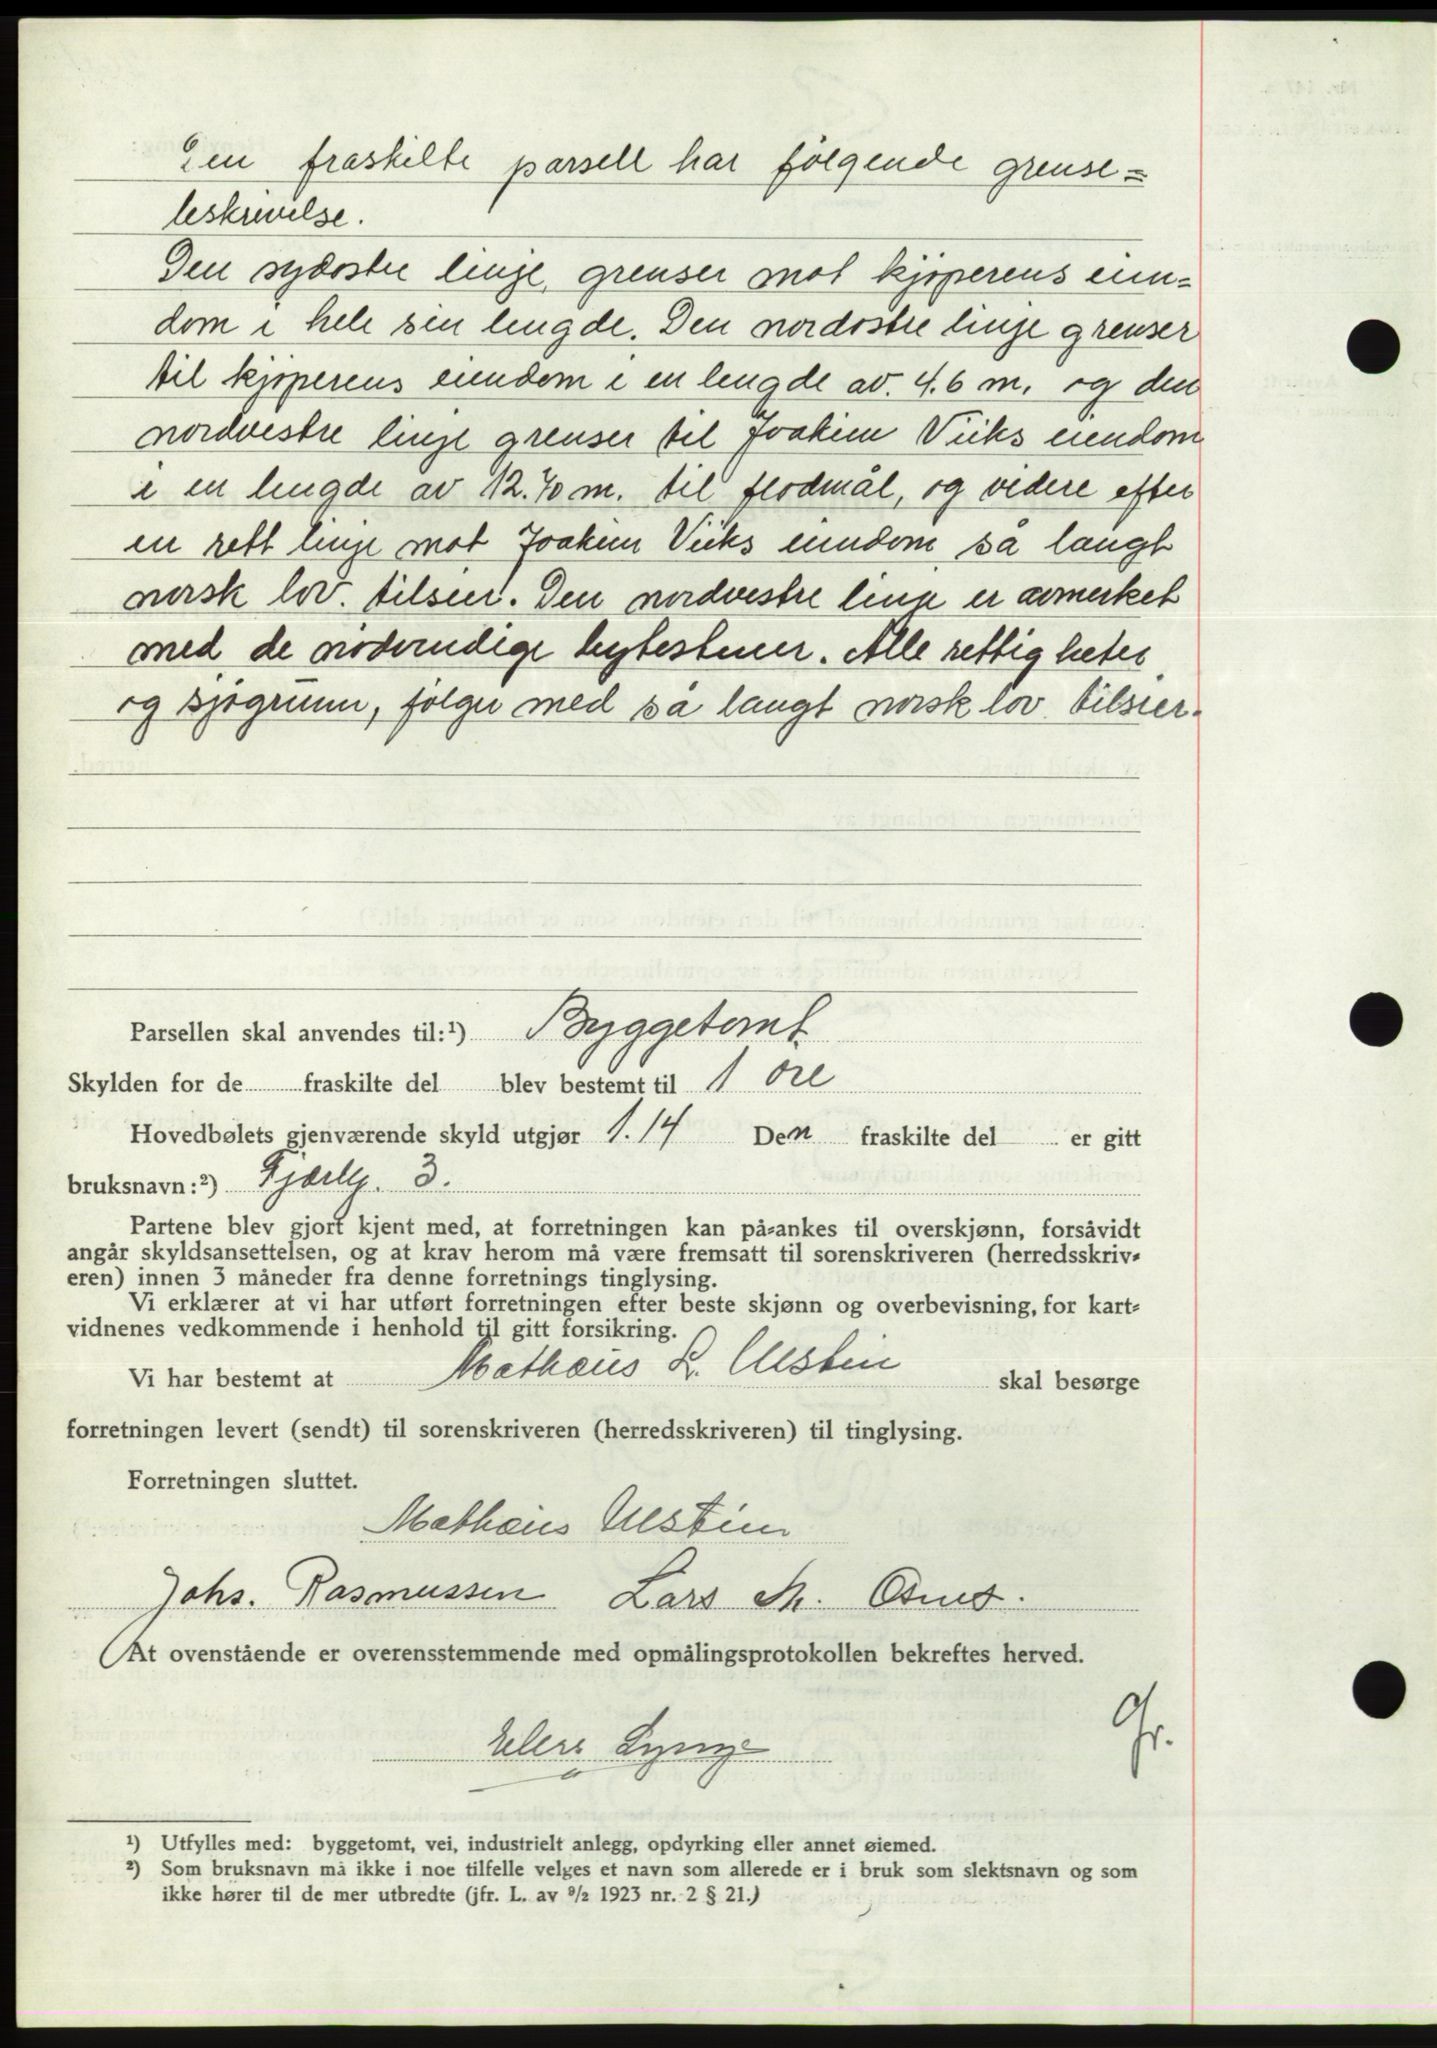 Den fraskilte parsell har følgende grense=
beskrivelse.
Den sydostre linje, grenser mot kjøperens eien=
dom i hele sin lengde. Den nordostre linje grenser
til kjøperens eiendom i en lengde av. 4.6 m. og den
nordvestre linje grenser til Joakim Viiks eiendom
i en lengde av 12.70 m. til flodmål, og videre efter
en rett linje mot Joakim Viiks eiendom så langt
norsk lov. tilsier. Den nordvestre linje er avmerket
med de nødvendige bytestener. Alle rettigheter
og sjøgrunn, følger med så langt norsk lov tilsier.
Parsellen skal anvendes til:¹) Byggetomt
Skylden for de fraskilte del blev bestemt til 1 øre
Hovedbølets gjenværende skyld utgjør 1.14 Den fraskilte del er gitt
bruksnavn:²) Fjærly. 3.
Partene blev gjort kjent med, at forretningen kan på=ankes til overskjønn, forsåvidt
angår skyldsansettelsen, og at krav herom må være fremsatt til sorenskriveren (herredsskriv=
eren) innen 3 måneder fra denne forretnings tinglysing.
Vi erklærer at vi har utført forretningen efter beste skjønn og overbevisning, for kart=
vidnenes vedkommende i henhold til gitt forsikring.
Vi har bestemt at Mathæus L. Ulstein skal besørge
forretningen levert (sendt) til sorenskriveren (herredsskriveren) til tinglysing.
Forretningen sluttet.
Mathæus Ulstein
Johs. Rasmussen Lars M. Osnes.
At ovenstående er overensstemmende med opmålingsprotokollen bekreftes herved.
Elers Lynge
Gr.
¹) Utfylles med: byggetomt, vei, industrielt anlegg, opdyrking eller annet øiemed.
²) Som bruksnavn må ikke i noe tilfelle velges et navn som allerede er i bruk som slektsnavn og som
ikke hører til de mer utbredte (jfr. L. av ⁹/₂ 1923 nr. 2 § 21.)